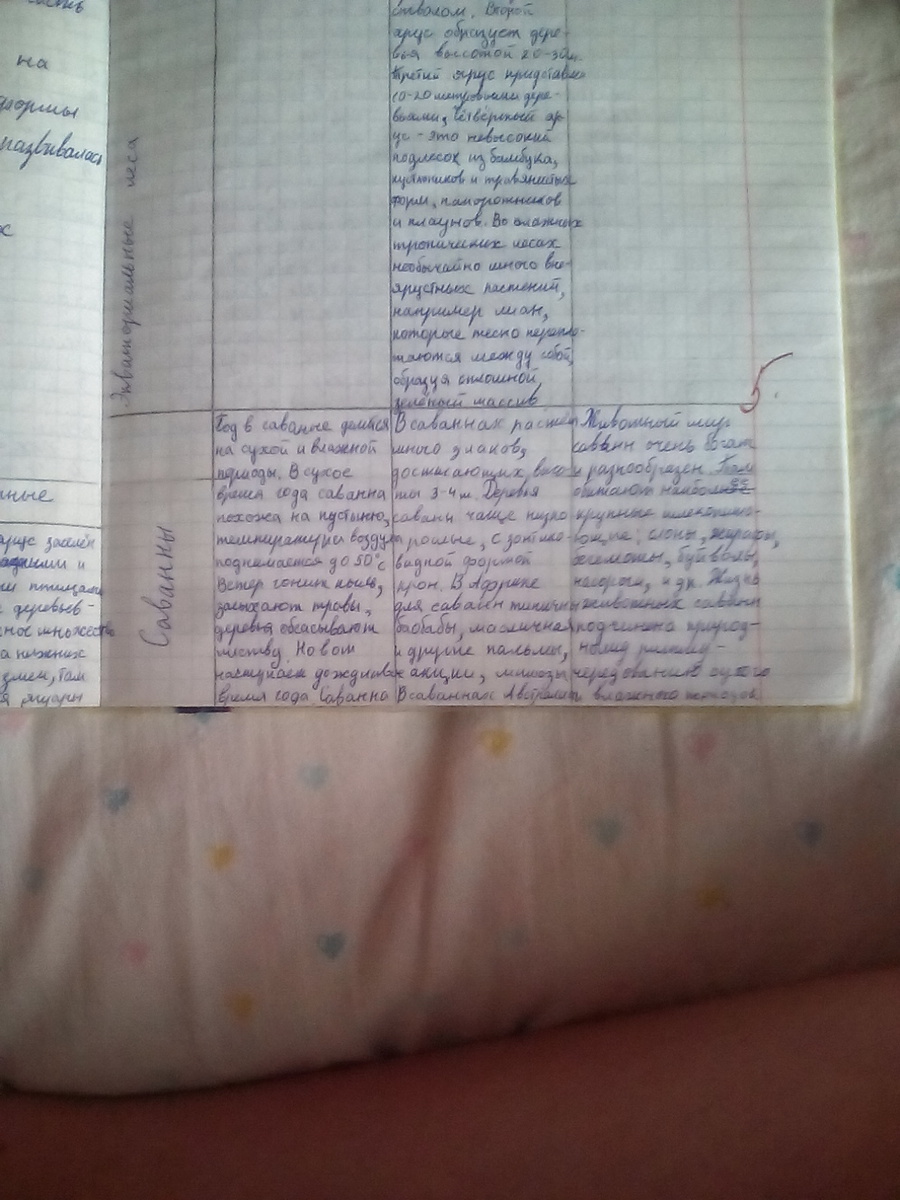 на
формы
развивалась
нные
ярус заселён
и
деревьев-
множеств
нижних
змеи, там
ягуары
Экваториальные леса
стволом. Второй
ярус образует дере-
вья высотой 20-30м.
Третий ярус представлен
10-20 метровыми дере-
вьями, Четвёртый яр
ус - это невысокий
подлесок из бамбука,
кустарников и травянистых
форм, папоротников
и плаунов. Во влажных
тропических лесах
необычайно много вне-
ярустных растений,
например лиан,
которые тесно перепле-
таются между собой,
образуя сплошной,
зелёный массив
5.
Саванны
Год в саванне делится
на сухой и влажной
периоды. В сухое
время года саванна
похожа на пустыню,
температуры воздух
поднимается до 50°с
Ветер гонит пыль,
засыхают травы,
деревья сбасывают
листву. Но вот
наступает дождливое
время года. Саванна
В саваннах растёт
много злаков,
достигающих высо
ты 3-4 м. Деревья
саванн чаще низко
рослые, с зонтико-
видной формой
крон. В Африке
для саванн типичны
баобабы, масличная
и другие пальмы,
акации, мимозы
В саваннах Австралии
Животный мир
саванн очень богат
и разнообразен. Там
обитают наиболее
крупные млекопита-
ющие: слоны, жирафы,
бегемоты, буйволы,
носороги, и др. Жизнь
животных саванн
подчинена природ-
ному ритму -
чередованию сухого
и влажного периодов